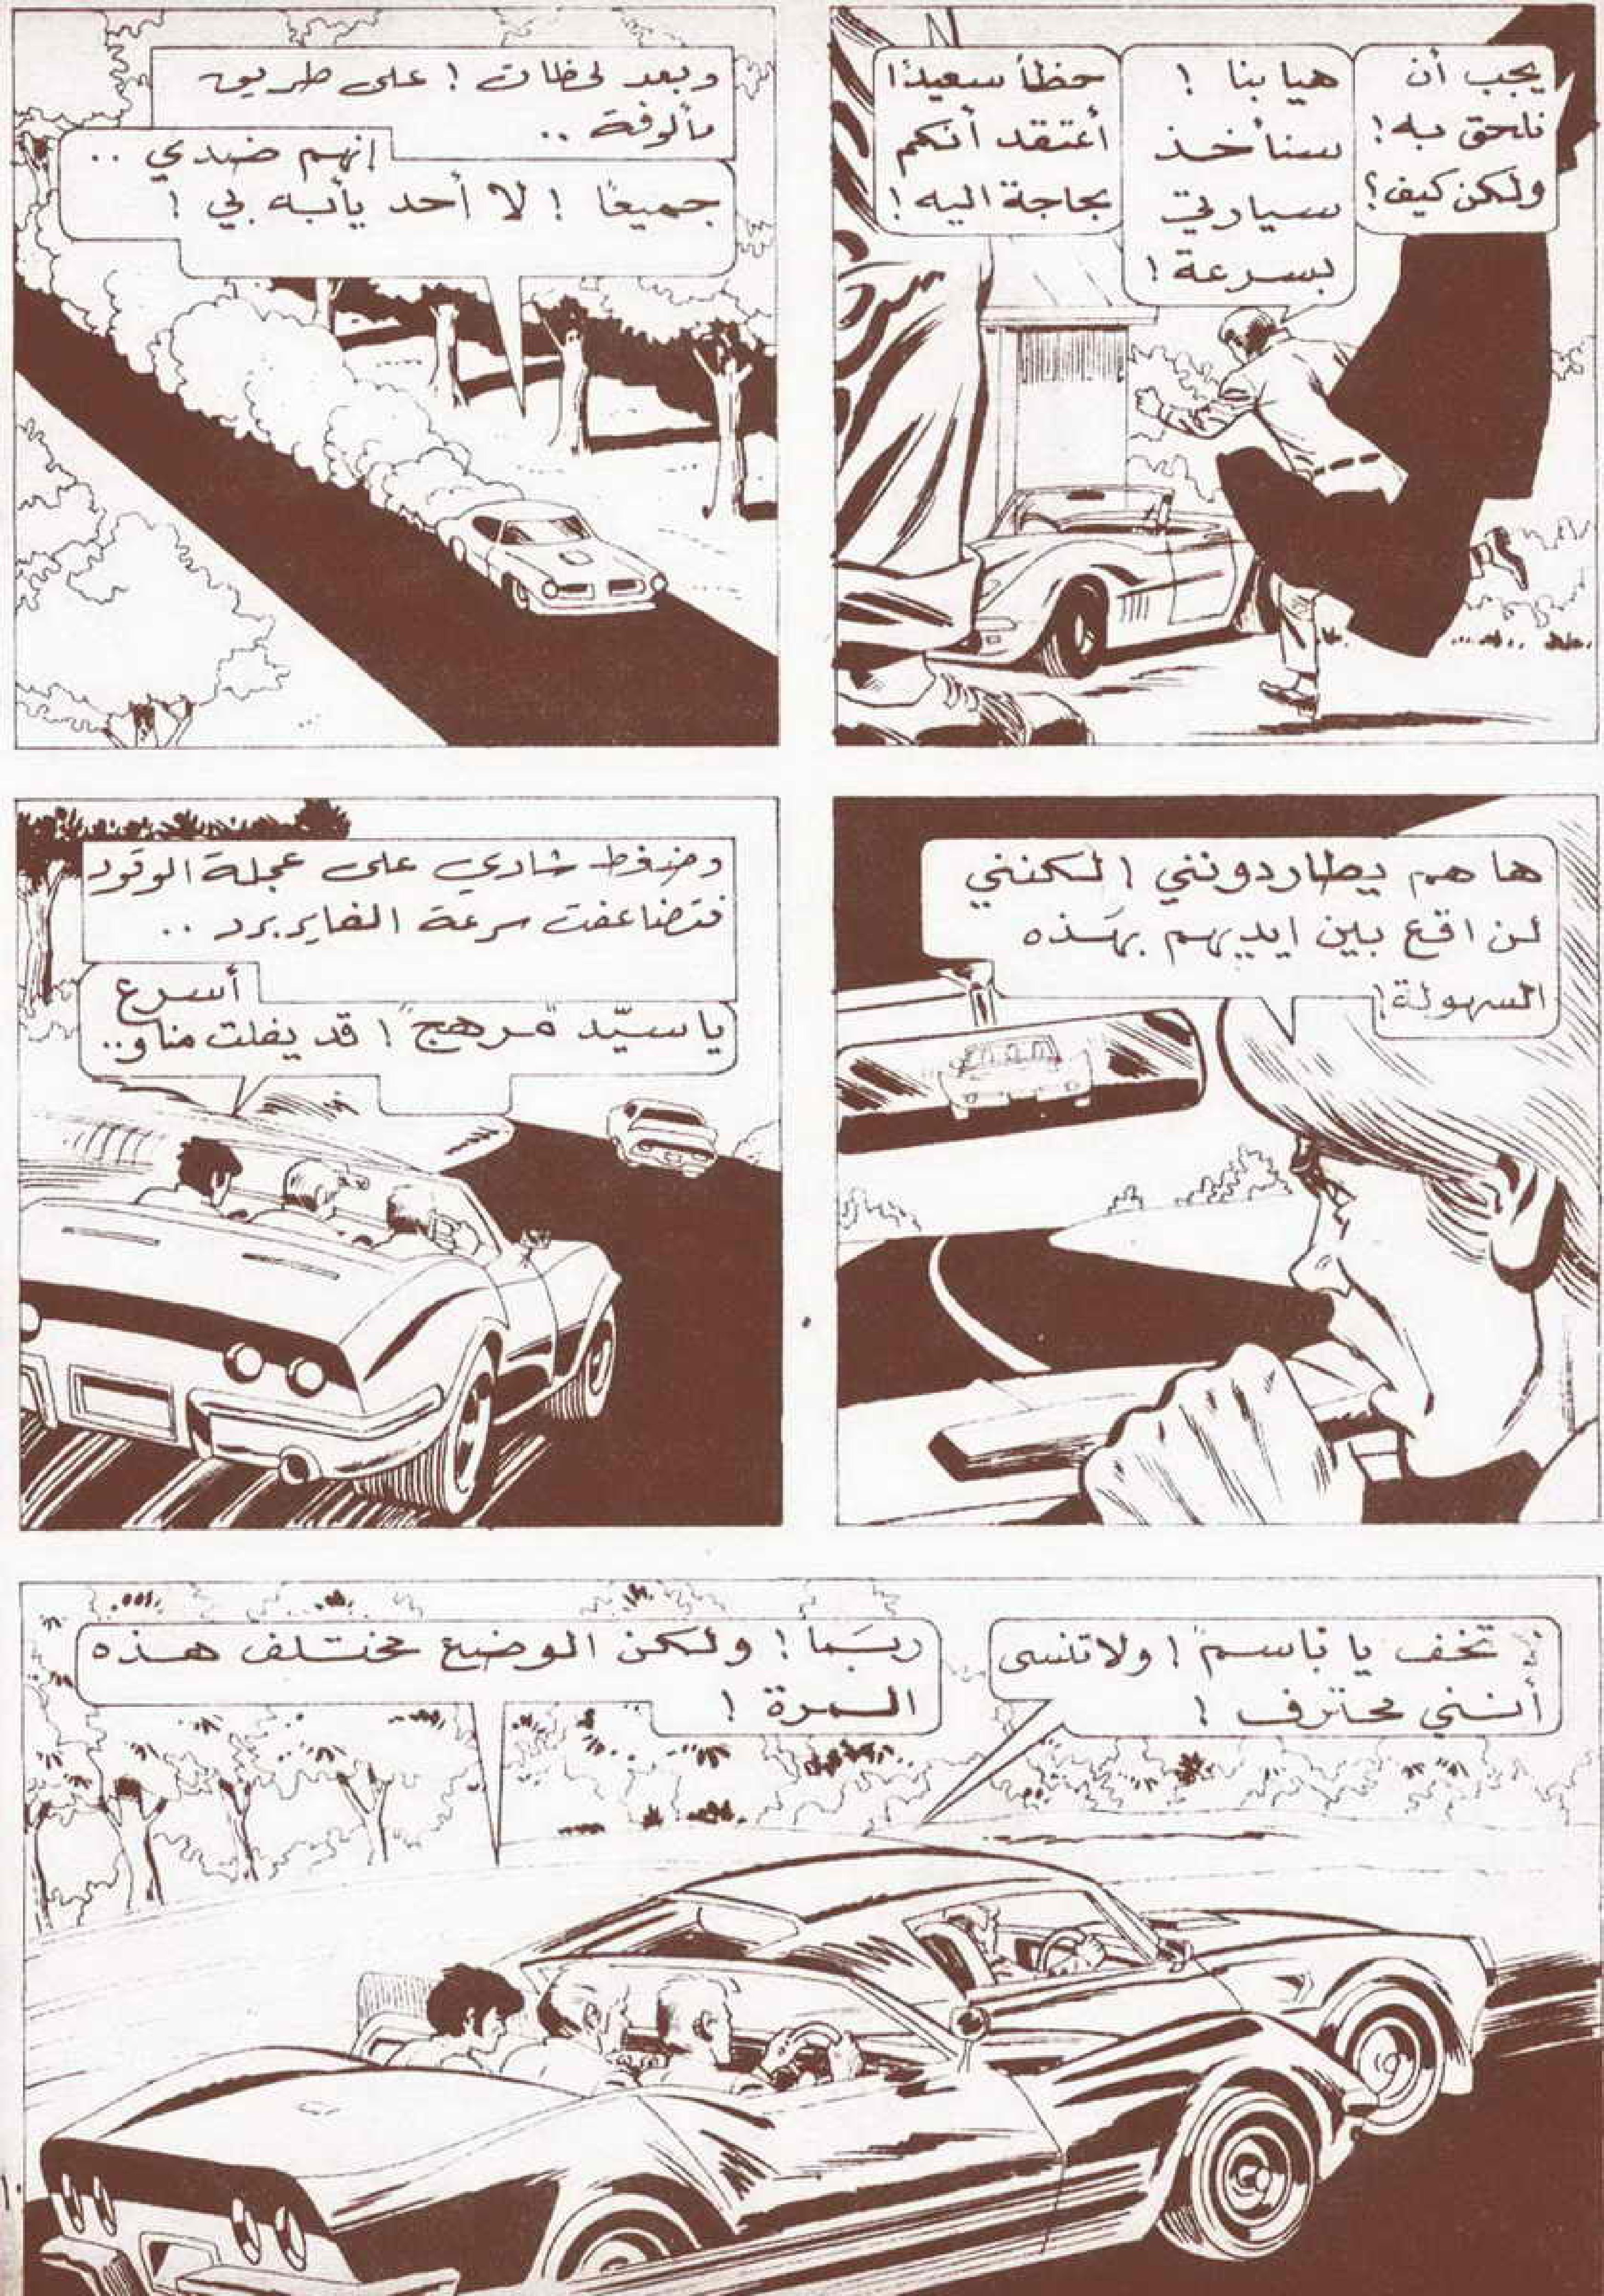 يجب أن
نلحق به!
ولكن كيف؟
هيا بنا !
سنأخذ
سيارتي
بسرعة !
حظاً سعيدًا
أعتقد أنكم
بحاجة اليه !
وبعد لحظات ! على طريق
مألوفة ..
إنهم ضدي ..
جميعًا ! لا أحد يأبه بي !
ها هم يطاردونني ! لكنني
لن اقع بين ايديهم بهذه
السهولة !
وضغط شادي على عجلة الوقود
فتضاعفت سرعة الفايربرد ..
أسرع
يا سيّد "مرهج" ! قد يفلت منا و..
تخف يا باسم ! ولا تنسى
أنني محترف !
ربما ! ولكن الوضع مختلف هذه
المرة !
١٠